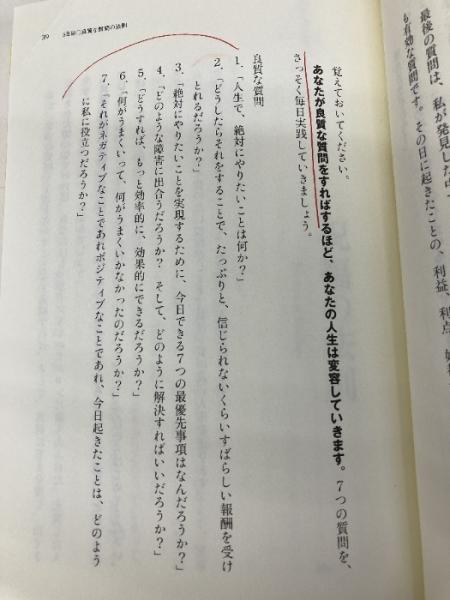 最後の質問は、私が発見した中
も有効な質問です。その日に起きたことの、利益、利点、
覚えておいてください。
あなたが良質な質問をすればするほど、あなたの人生は変容していきます。7つの質問を、
さっそく毎日実践していきましょう。
良質な質問
1.「人生で、絶対にやりたいことは何か?」
2.「どうしたらそれをすることで、たっぷりと、信じられないくらいすばらしい報酬を受け
とれるだろうか?」
3.「絶対にやりたいことを実現するために、今日できる7つの最優先事項はなんだろうか?」
4.「どのような障害に出合うだろうか? そして、どのように解決すればいいだろうか?」
5.「どうすれば、もっと効率的に、効果的にできるだろうか?」
6.「何がうまくいって、何がうまくいかなかったのだろうか?」
7.「それがネガティブなことであれポジティブなことであれ、今日起きたことは、どのよう
に私に役立つだろうか?」